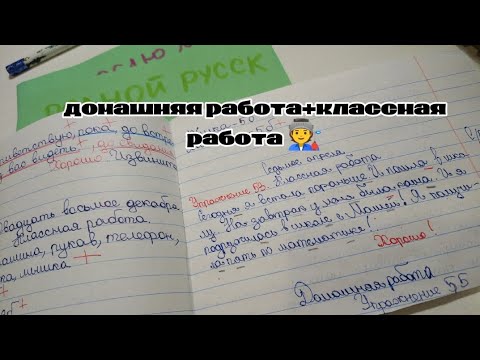 РОДНОЙ РУССК
донашняя работа+классная
работа
вас видеть
Хорошо Извините
Двадцать восьмое декабря.
Классная работа.
машина, рукав, телефон,
Седьмое апреля.
Классная работа
Упражнение
я встала пораньше И пошла в шко-
лу. На завтрак у меня была каша. И я
подружилась в школе с Машей! Я получи-
ла пять по математике!
Хорошо!
Домашняя работа
Упражнение 55